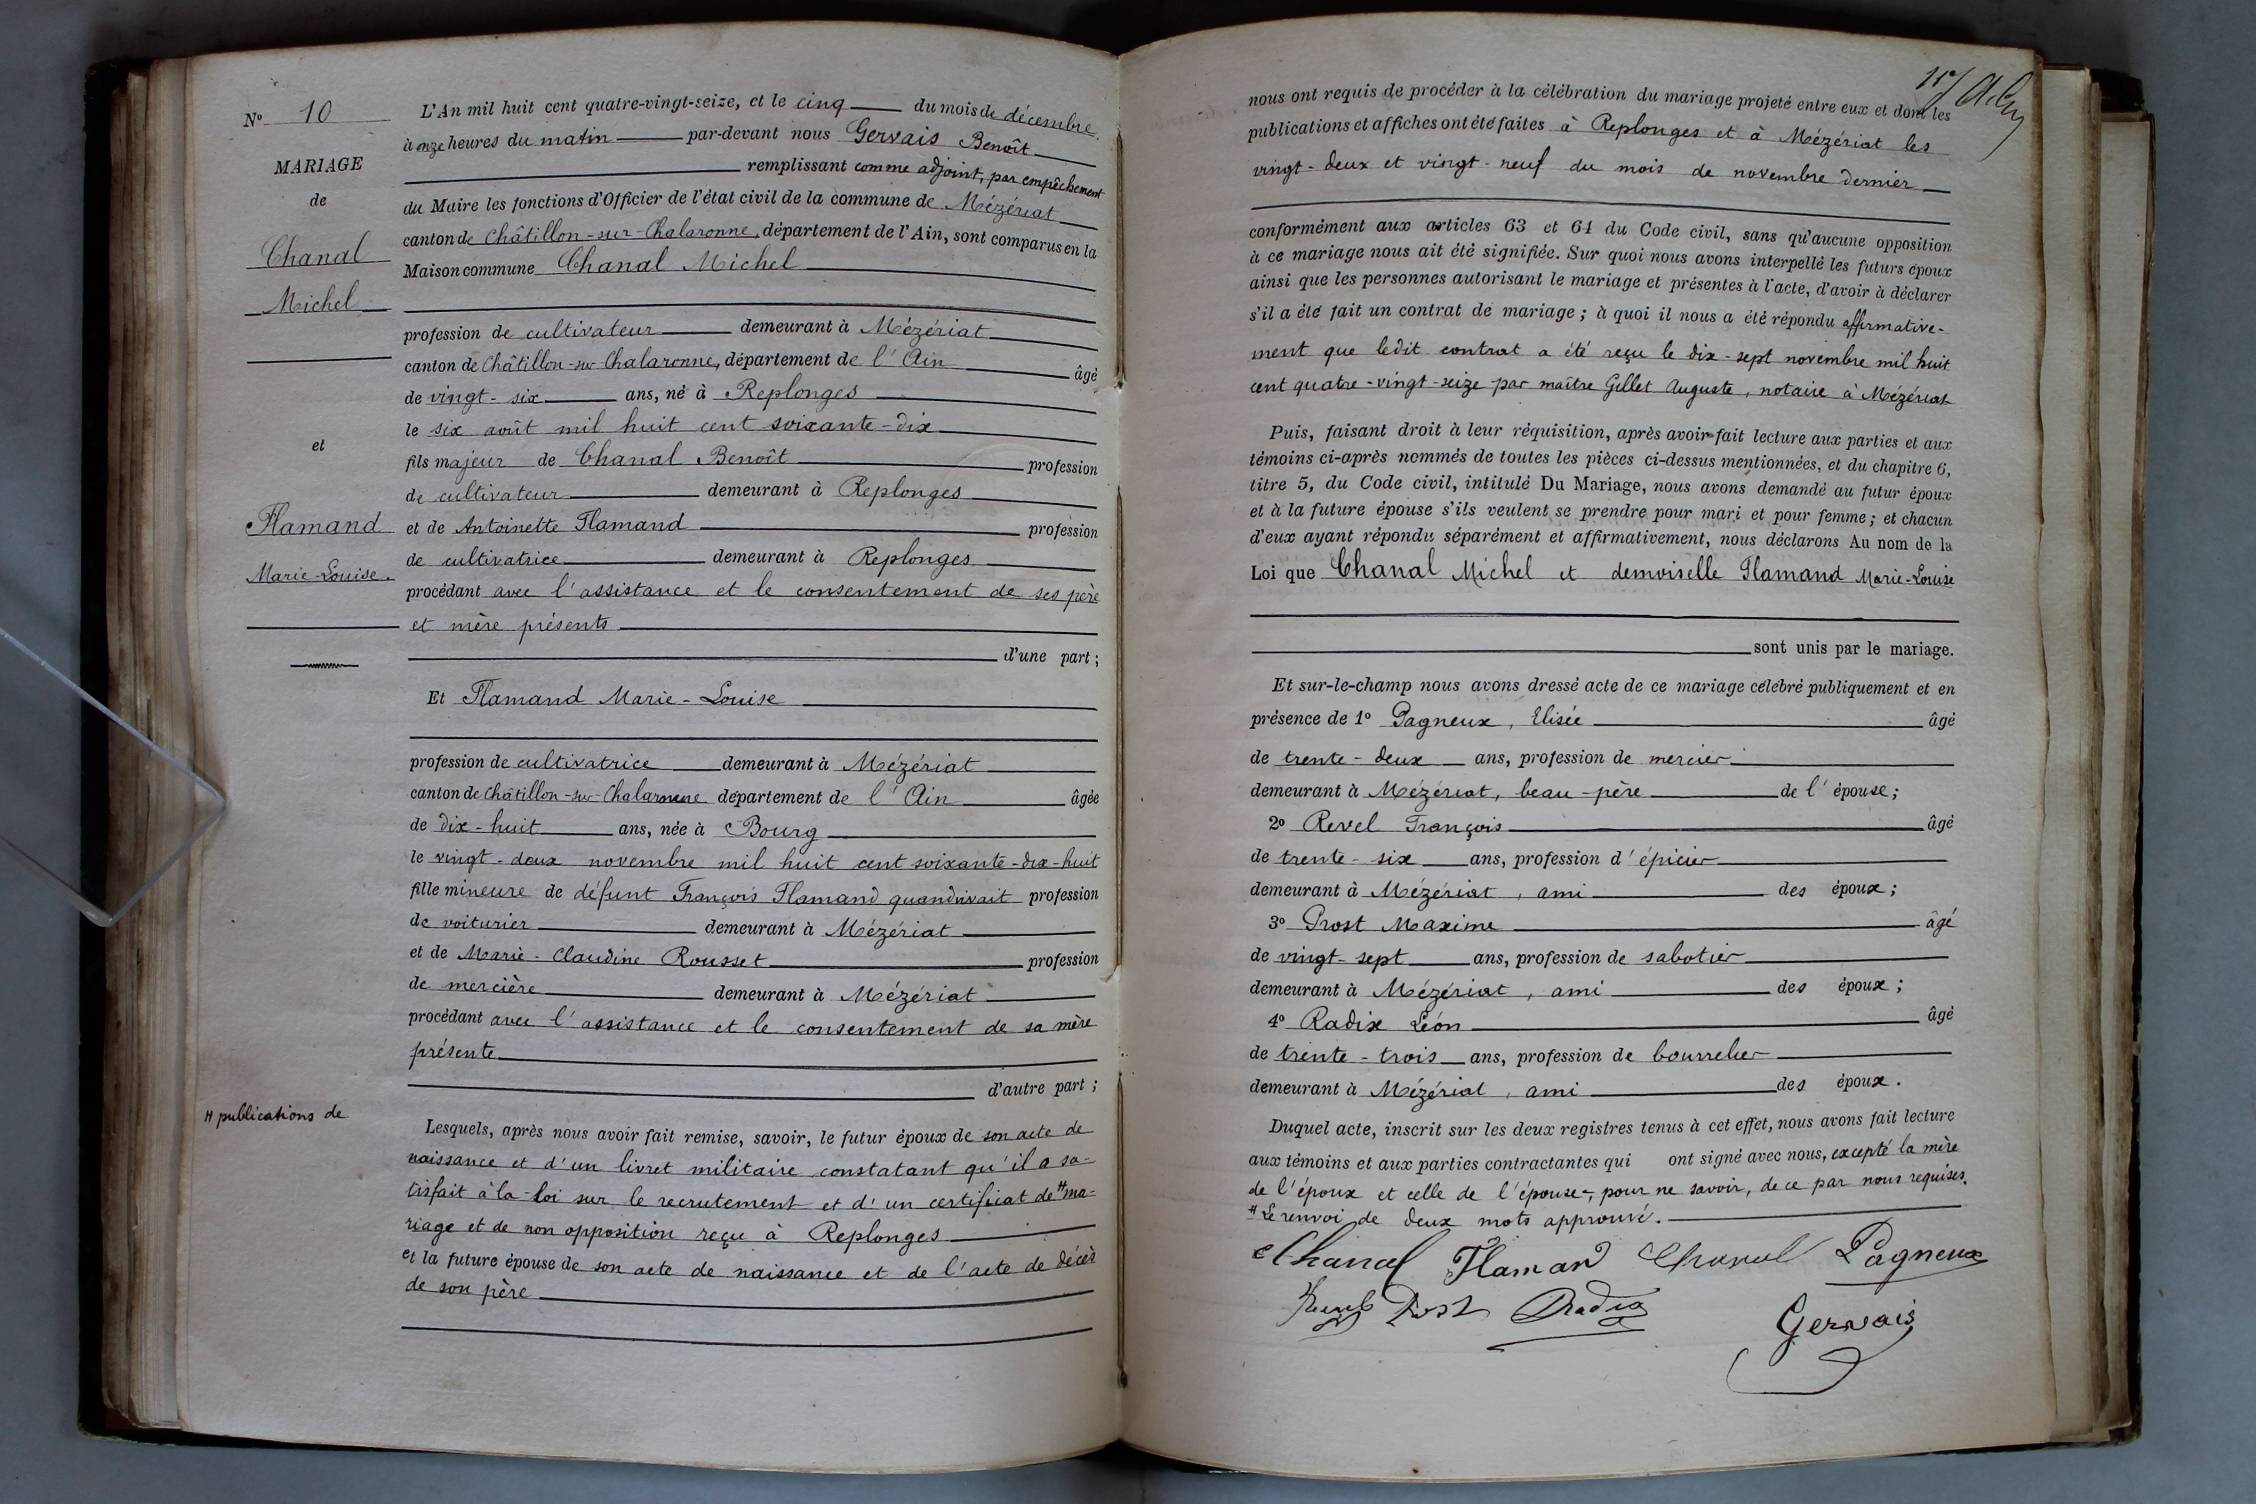 N° 10
MARIAGE
de
Chanal
Michel
et
Flamand
Marie-Louise.
# publications de
L'An mil huit cent quatre-vingt-seize, et le cinq du mois de décembre
à onze heures du matin par-devant nous Gervais Benoît
remplissant comme adjoint, par empêchement
du Maire les fonctions d'Officier de l'état civil de la commune de Mézériat
canton de Châtillon-sur-Chalaronne, département de l'Ain, sont comparus en la
Maison commune Chanal Michel
profession de cultivateur demeurant à Mézériat
canton de Châtillon-sur-Chalaronne, département de l'Ain âgé
de vingt-six ans, né à Replonges
le six août mil huit cent soixante-dix
fils majeur de Chanal Benoît profession
de cultivateur demeurant à Replonges
et de Antoinette Flamand profession
de cultivatrice demeurant à Replonges
procédant avec l'assistance et le consentement de ses père
et mère présents
d'une part ;
Et Flamand Marie-Louise
profession de cultivatrice demeurant à Mézériat
canton de Châtillon-sur-Chalaronne département de l'Ain âgée
de dix-huit ans, née à Bourg
le vingt-deux novembre mil huit cent soixante-dix-huit
fille mineure de défunt François Flamand quand vivait profession
de voiturier demeurant à Mézériat
et de Marie-Claudine Rousset profession
de mercière demeurant à Mézériat
procédant avec l'assistance et le consentement de sa mère
présente
d'autre part ;
Lesquels, après nous avoir fait remise, savoir, le futur époux de son acte de
naissance et d'un livret militaire constatant qu'il a sa-
tisfait à la loi sur le recrutement et d'un certificat de # ma-
riage et de non opposition reçu à Replonges
et la future épouse de son acte de naissance et de l'acte de décès
de son père
nous ont requis de procéder à la célébration du mariage projeté entre eux et dont les
publications et affiches ont été faites à Replonges et à Mézériat les
vingt-deux et vingt-neuf du mois de novembre dernier
conformément aux articles 63 et 64 du Code civil, sans qu'aucune opposition
à ce mariage nous ait été signifiée. Sur quoi nous avons interpellé les futurs époux
ainsi que les personnes autorisant le mariage et présentes à l'acte, d'avoir à déclarer
s'il a été fait un contrat de mariage ; à quoi il nous a été répondu affirmative-
ment que ledit contrat a été reçu le dix-sept novembre mil huit
cent quatre-vingt-seize par maître Gillet Auguste, notaire à Mézériat
Puis, faisant droit à leur réquisition, après avoir fait lecture aux parties et aux
témoins ci-après nommés de toutes les pièces ci-dessus mentionnées, et du chapitre 6,
titre 5, du Code civil, intitulé Du Mariage, nous avons demandé au futur époux
et à la future épouse s'ils veulent se prendre pour mari et pour femme ; et chacun
d'eux ayant répondu séparément et affirmativement, nous déclarons Au nom de la
Loi que Chanal Michel et demoiselle Flamand Marie-Louise
sont unis par le mariage.
Et sur-le-champ nous avons dressé acte de ce mariage célébré publiquement et en
présence de 1° Pagneux, Elisée âgé
de trente-deux ans, profession de mercier
demeurant à Mézériat, beau-père de l'épouse ;
2° Revel François âgé
de trente-six ans, profession d'épicier
demeurant à Mézériat, ami des époux ;
3° Prost Maxime âgé
de vingt-sept ans, profession de sabotier
demeurant à Mézériat, ami des époux ;
4° Radix Léon âgé
de trente-trois ans, profession de bourrelier
demeurant à Mézériat, ami des époux.
Duquel acte, inscrit sur les deux registres tenus à cet effet, nous avons fait lecture
aux témoins et aux parties contractantes qui ont signé avec nous, excepté la mère
de l'époux et celle de l'épouse, pour ne savoir, de ce par nous requises.
# Le renvoi de deux mots approuvé.
Chanal Flamand Chanal Pagneux
Prost Radix
Gervais